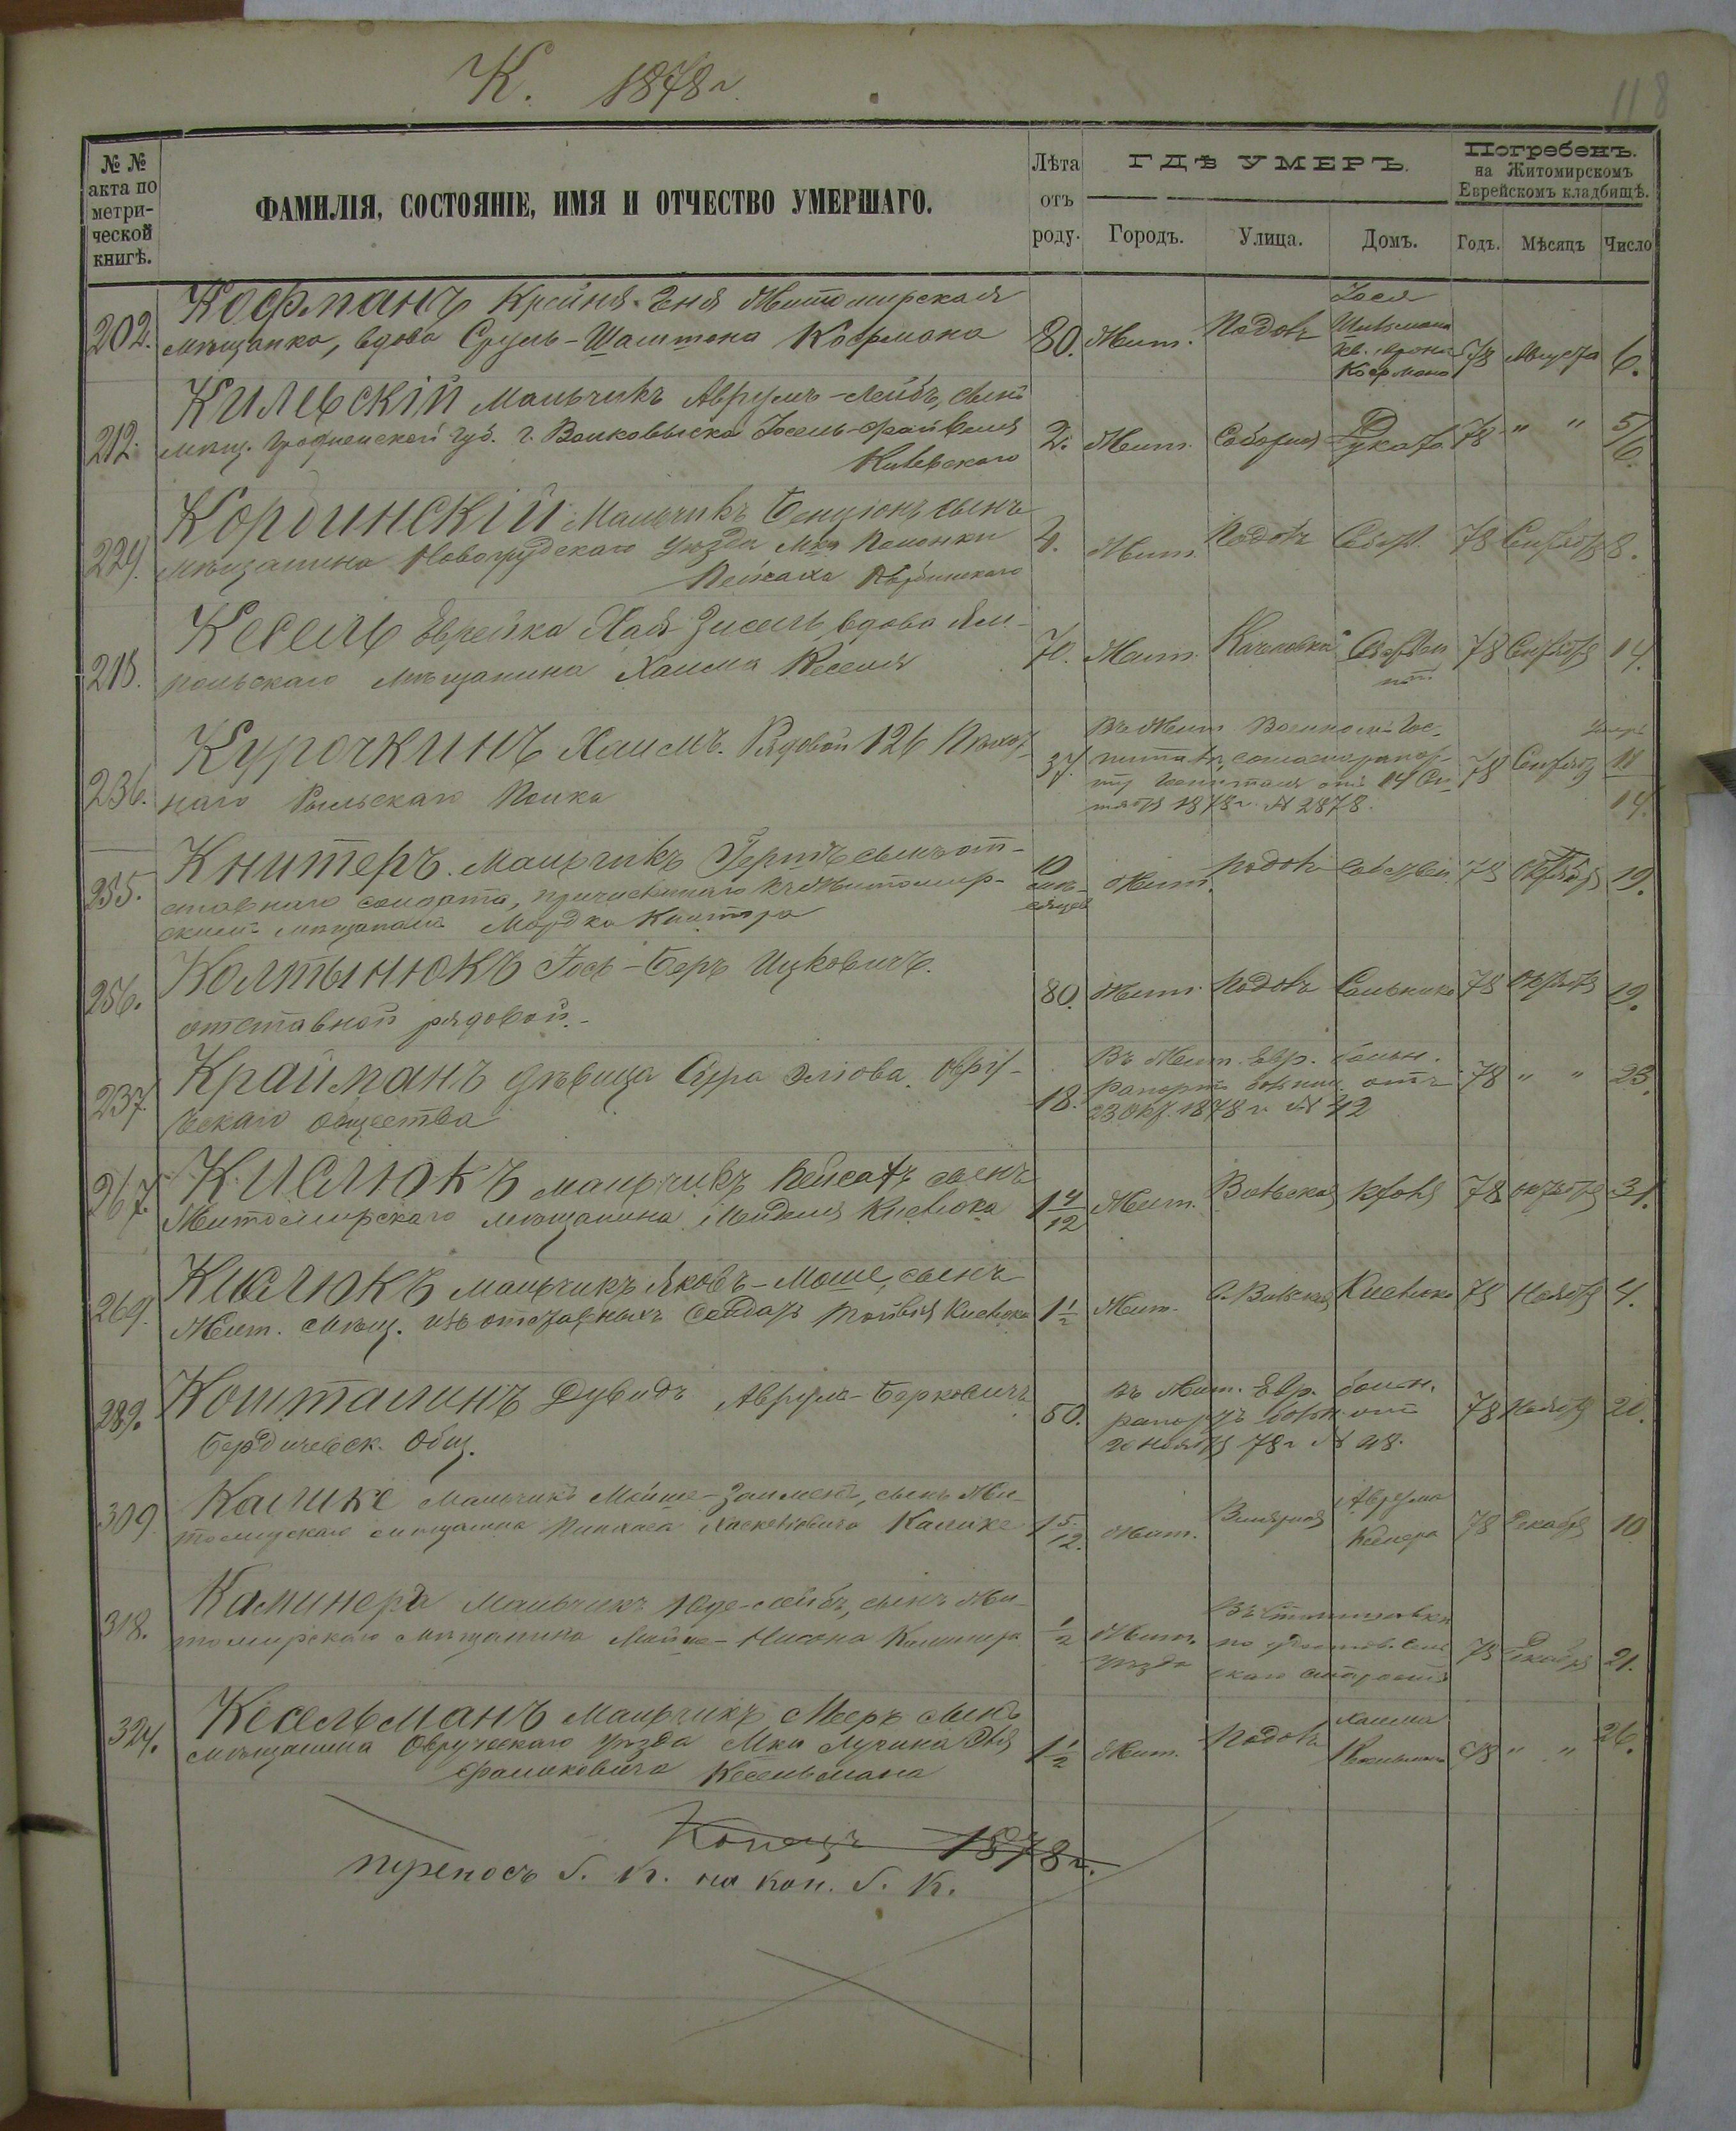 К. 1878 г.
118
№ №
акта по
метри-
ческой
книгѣ.
ФАМИЛІЯ, СОСТОЯНІЕ, ИМЯ И ОТЧЕСТВО УМЕРШАГО.
Лѣта
отъ
роду.
ГДѢ УМЕРЪ.
Городъ. Улица. Домъ.
Погребенъ.
на Житомирскомъ
Еврейскомъ кладбищѣ.
Годъ. Мѣсяцъ Число
202. Кофманъ Крейня-Эня Житомирская
мѣщанка, вдова Сруль- Кофмана 80. Жит. Подолъ 78 Августа 6.
212. Килевскій мальчикъ Аврумъ-Лейбъ, сынъ
мѣщ. Гродненской губ. г. Волковыска Іосель-Файвеля
Килевскаго 2. Жит. Соборная 78 " " 5/6.
229. мальчикъ Бенціонъ сынъ
мѣщанина Новогрудскаго уѣзда мка Полонки
Пейсаха 4. Жит. Подолъ Собст. 78 Сентября 8.
215. Кесель Еврейка Хая-Зисель, вдова Ям-
польскаго мѣщанина Хаима Кеселя 70. Жит. Собствен 78 Сентября 14.
236. Курочкинъ Хаимъ. Рядовой 126 Пѣхот-
наго Рыльскаго Полка 37. Въ Жит. Военномъ Гос-
питалѣ, согласно рапор-
ту Госпиталя отъ 14 Сен-
тября 1878 г. № 2878. 78 Сентября
умеръ 11
14.
255. Книтеръ. мальчикъ Гершъ сынъ от-
ставнаго солдата, причисленнаго къ Житомир-
скимъ мѣщанамъ Мордка Книтера 10 мѣ-
сяцев Жит. Подолъ Собствен. 78 Октября 19.
256. Колтынюкъ Іось-Беръ Ицковичъ.
отставной рядовой.- 80. Жит. Подолъ 78 Октября 19.
237. Крайманъ дѣвица Сура Эліова. Овру-
ческаго общества 18. Въ Жит. Евр. больн.
рапортъ больниц. отъ
23 Окт. 1878 г. № 42 78 " " 23.
267. Кислюкъ мальчикъ Пейсахъ сынъ
Житомирскаго мѣщанина Менделя Кислюка 1 4/12 Жит. Вильская 78 октября 31.
269. Кислюкъ мальчикъ Яковъ-Моше, сынъ
Жит. мѣщ. изъ отставныхъ Солдатъ Тойвья Кислюка 1 1/2 Жит. Кислюка 78 Ноября 4.
289. Кошталинъ Дувидъ Аврумъ-Берковичъ
Бердичевск. Общ. 50. въ Жит. Евр. больн.
рапортъ больн. отъ
20 Ноября 78 г. № 48. 78 Ноября 20.
309. Калике мальчикъ Мойше-Залменъ, сынъ Жи-
томирскаго мѣщанина Пинхаса Калике 1 5/12. Жит. Аврума
78 Декабря 10
318. Каминеръ мальчикъ Юде-Лейбъ, сынъ Жи-
томирскаго мѣщанина Мойше-Нисона Каминера 1/2 Жит.
уѣзда
78 Декабря 21.
324. Кесельманъ мальчикъ Мееръ сынъ
мѣщанина Овручскаго уѣзда мка Лугина
Кесельмана 1 1/2 Жит. Подолъ Хаима
Кесельмана 78 " " 26.
Конецъ 1878 г.
переносъ б. К. на кон. б. К.